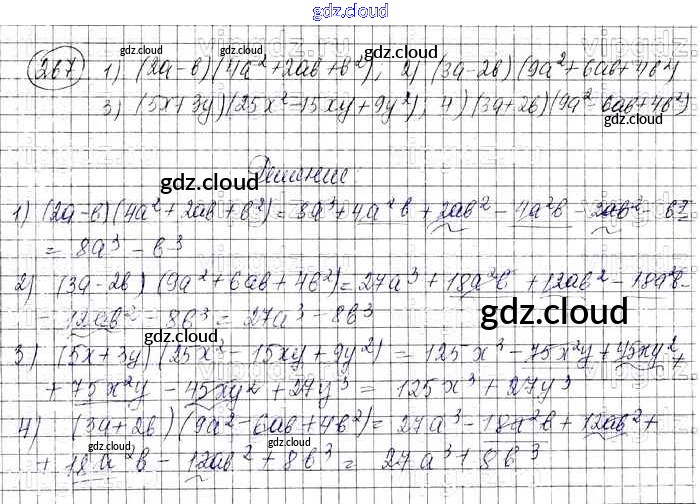 gdz.cloud
267 1) (2a-b)(4a²+2ab+b²); 2) (3a-2b)(9a²+6ab+4b²)
3) (5x+3y)(25x²-15xy+9y²); 4) (3a+2b)(9a²-6ab+4b²)
Решение:
gdz.cloud
1) (2a-b)(4a²+2ab+b²)=8a³+4a²b+2ab²-4a²b-2ab²-b³=
= 8a³-b³
2) (3a-2b)(9a²+6ab+4b²)=27a³+18a²b+12ab²-18a²b-
- 12ab²-8b³=27a³-8b³
gdz.cloud
3) (5x+3y)(25x²-15xy+9y²)=125x³-75x²y+45xy²+
+75x²y-45xy²+27y³=125x³+27y³
4) (3a+2b)(9a²-6ab+4b²)=27a³-18a²b+12ab²+
+18a²b-12ab²+8b³=27a³+8b³